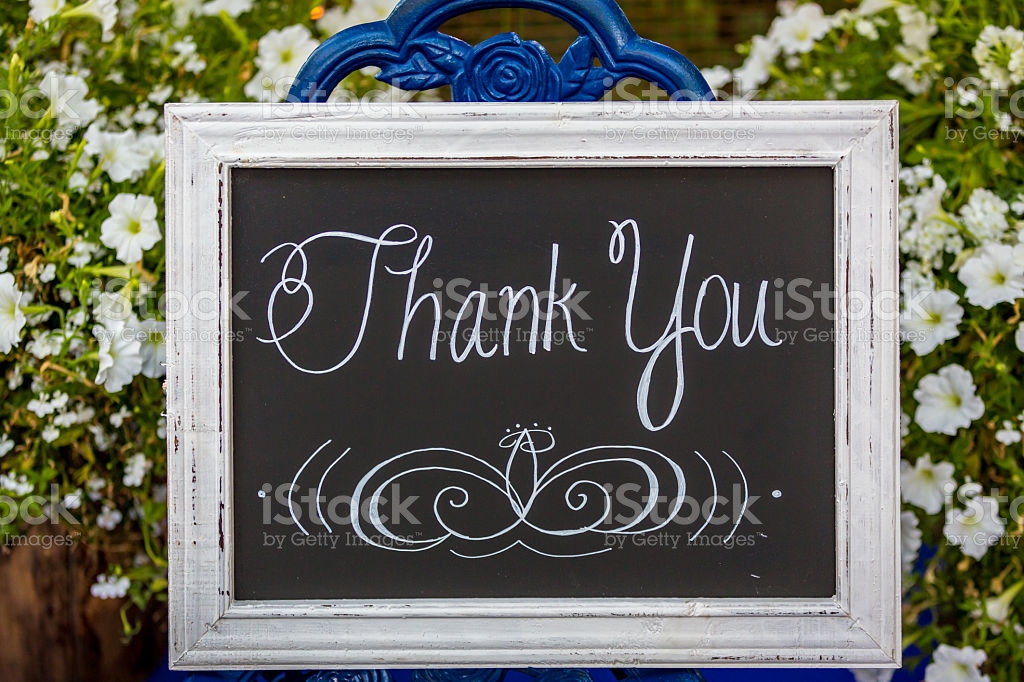 Thank You
iStock
by Getty Images™